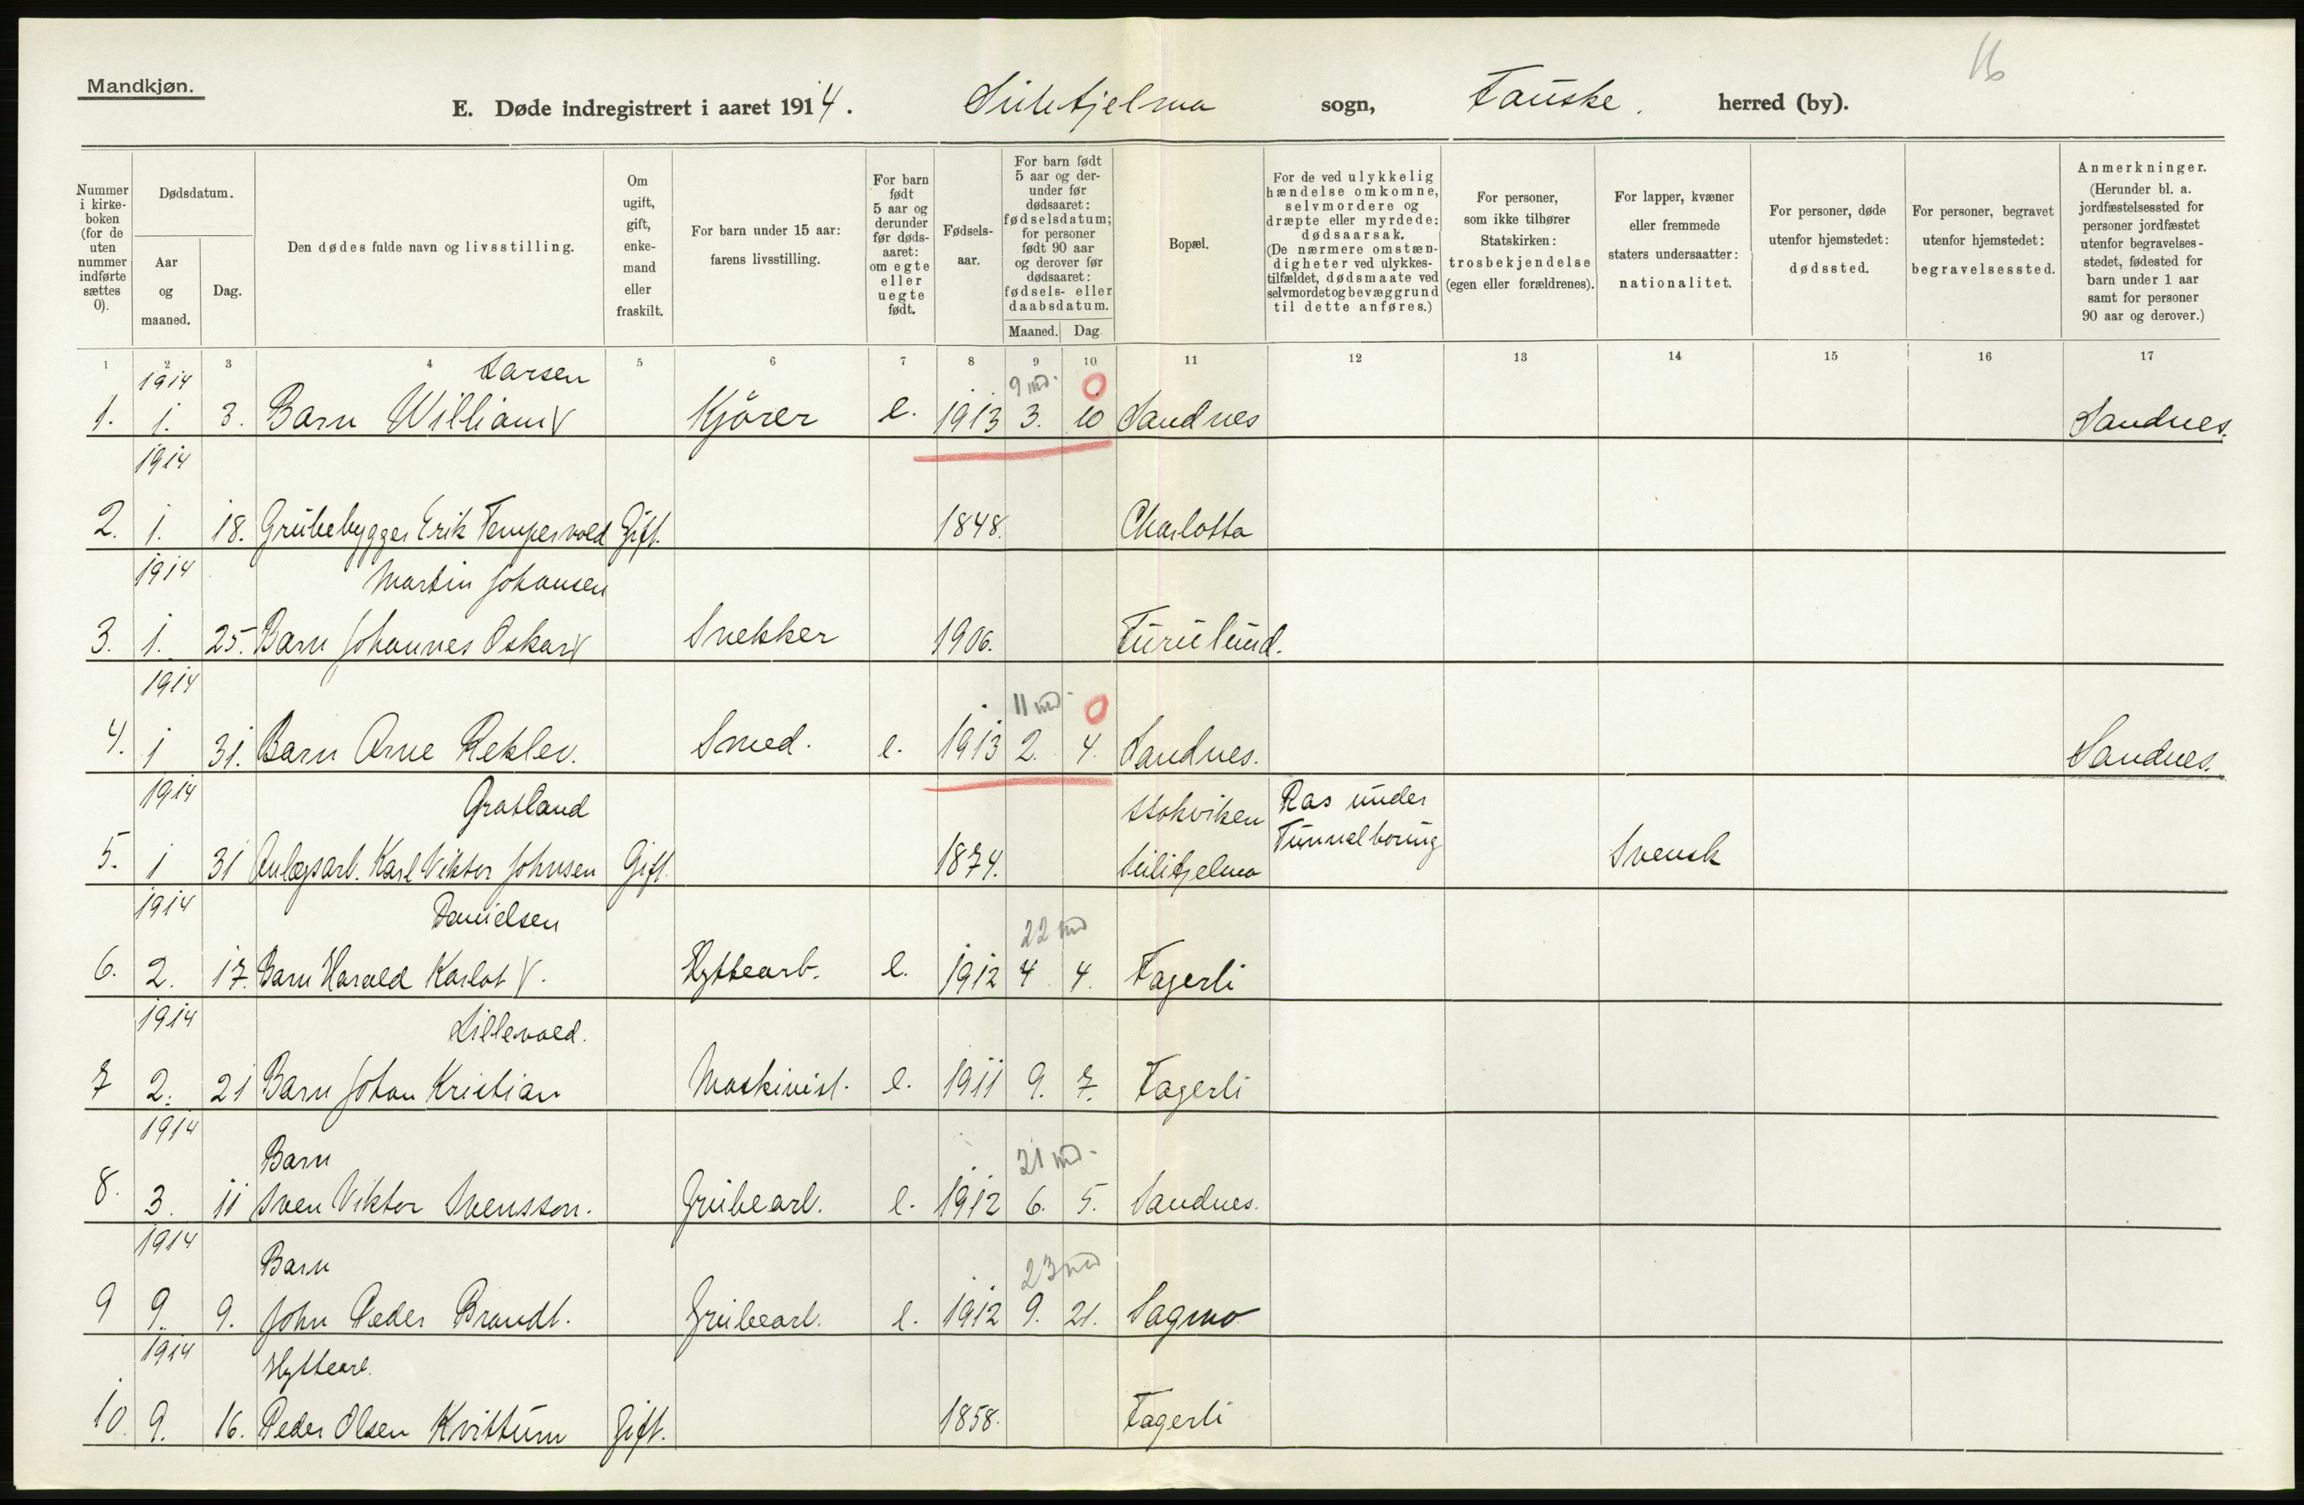 16
Mandkjøn.
E. Døde indregistrert i aaret 1914. Sulitjelma sogn, Fauske. herred (by).
Nummer i kirkeboken (for de uten nummer indførte sættes 0).
Dødsdatum.
Aar og maaned.
Dag.
Den dødes fulde navn og livsstilling.
Om ugift, gift, enkemand eller fraskilt.
For barn under 15 aar: farens livsstilling.
For barn født 5 aar og derunder før dødsaaret: om egte eller uegte født.
Fødselsaar.
For barn født 5 aar og derunder før dødsaaret: fødselsdatum; for personer født 90 aar og derover før dødsaaret: fødsels- eller daabsdatum.
Maaned. Dag
Bopæl.
For de ved ulykkelig hændelse omkomne, selvmordere og dræpte eller myrdede: dødsaarsak. (De nærmere omstændigheter ved ulykkestilfældet, dødsmaate ved selvmordet og bevæggrund til dette anføres.)
For personer, som ikke tilhører Statskirken: trosbekjendelse (egen eller forældrenes).
For lapper, kvæner eller fremmede staters undersaatter: nationalitet.
For personer, døde utenfor hjemstedet: dødssted.
For personer, begravet utenfor hjemstedet: begravelsessted.
Anmerkninger. (Herunder bl. a. jordfæstelsessted for personer jordfæstet utenfor begravelsesstedet, fødested for barn under 1 aar samt for personer 90 aar og derover.)
1 2 3 4 5 6 7 8 9 10 11 12 13 14 15 16 17
1914 Larsen 9 md. 0
1. 1. 3. Barn William Kjörer e. 1913 3. 10 Sandnes Sandnes.
1914
2. 1. 18. Grubebygger Erik Tempervold Gift. 1848. Charlotta
1914 Martin Johansen
3. 1. 25. Barn Johannes Oskar Snekker 1906. Furulund.
1914 11 md. 0
4. 1 31. Barn Arne Reklev. Smed. e. 1913 2. 4. Sandnes. Sandnes.
1914 Gratland Stokviken Ras under Tunnelboring
5. 1 31 Anlægsarb. Karl Viktor Johnsen Gift. 1874. Sulitjelma Svensk
1914 Danielsen 22 md
6. 2. 17. Barn Harald Karlot. Hyttearb. e. 1912 4 4. Fagerli
1914 Lillevold.
7 2. 21 Barn Johan Kristian Maskinist. e. 1911 9. 7. Fagerli
1914 Barn 21 md.
8. 3. 11 Sven Viktor Svensson. Grubearb. e. 1912 6. 5. Sandnes.
1914 Barn 23 md
9 9. 9. John Peder Brandt. Grubearb. e. 1912 9. 21. Sagmo
1914 Hyttearb.
10. 9. 16. Peder Olsen Kvittum Gift. 1858. Fagerli